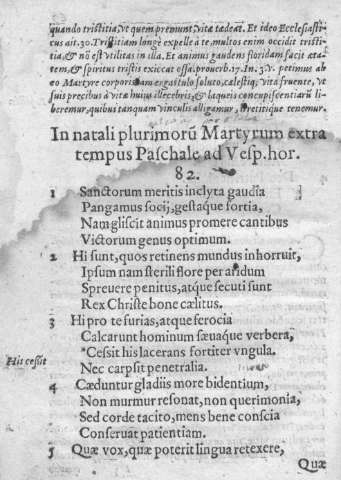 quando tristitia, vt quem premunt, vita tædeat. Et ideo Ecclesiasti-
cus ait. 30. Tristitiam longè expelle à te, multos enim occidit tristi-
tia, & nō est vtilitas in illa. Et animus gaudens floridam facit æta-
tem, & spiritus tristis exiccat ossa. prouerb. 17. In. 3. v. petimus ab
eo Martyre corporis ergastulo soluto, cælestiq; vita fruente, vt
suis precibus à vitæ huius illecebris, & laqueis concupiscentiarū li-
beremur, quibus tanquam vinculis alligamur, irretitique tenemur.
In natali plurimorū Martyrum extra
tempus Paschale ad Vesp. hor.
82.
1 Sanctorum meritis inclyta gaudia
Pangamus socij, gestaque fortia,
Nam gliscit animus promere cantibus
Victorum genus optimum.
2 Hi sunt, quos retinens mundus inhorruit,
Ipsum nam sterili flore per aridum
Spreuere penitus, atque secuti sunt
Rex Christe bone cælitus.
3 Hi pro te furias, atque ferocia
Calcarunt hominum sæuaque verbera,
*Cessit his lacerans fortiter vngula.
His cessit
Nec carpsit penetralia.
4 Cæduntur gladiis more bidentium,
Non murmur resonat, non querimonia,
Sed corde tacito, mens bene conscia
Conseruat patientiam.
5 Quæ vox, quæ poterit lingua retexere,
Quæ